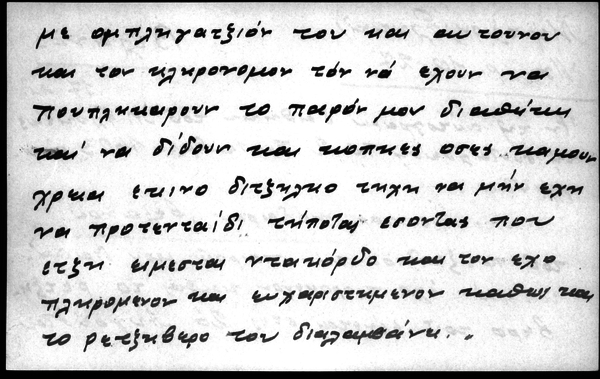 με ομπληγατζιόν του και αυτουνου
και τον κληρονομον τόν νά εχουν να
πουπληκαρουν το παρόν μου διαθήκη
καί να δίδουν και κοπηες οσες καμουν
χρεια εκινο διτζηλιο τηχη να μήν εχη
να προτενταίδι τήποται εσοντας που
ετζη ειμεσται ντακόρδο και τον εχο
πληρομενον και ευχαριστημενον καθως και
το ρετζηβερο του διαλαμβάνη..